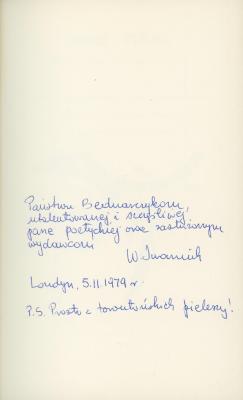 Państwu Bednarczykom,
utalentowanej i szczęśliwej
parze poetyckiej oraz zasłużonym
wydawcom
W. Iwaniuk
Londyn, 5.II.1979 r.
P.S. Prosto z torontońskich pieleszy!